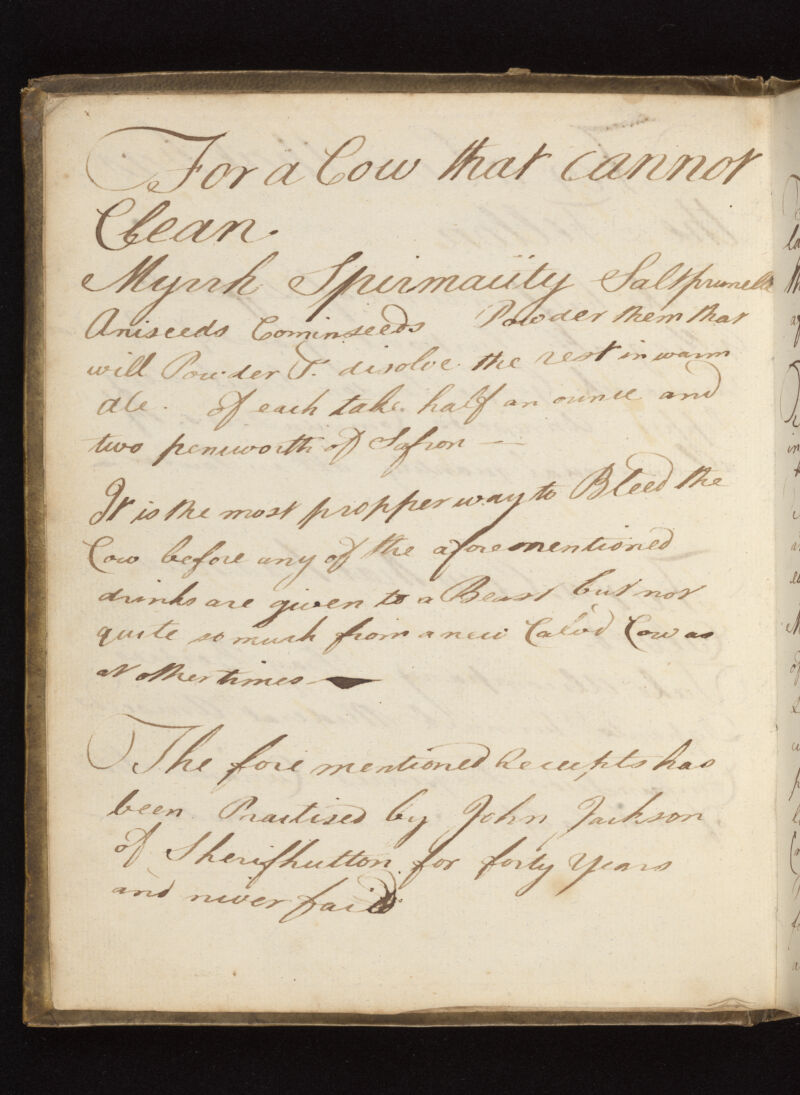 For a Cow that cannot
Clean.
Myrrh Spirmaiity Saltprunella
Aniseeds Cominseeds Powder them that
will Powder & disolve the rest in warm
Ale. of each take half an ounce and
two peniworth of Safron —
It is the most propper way to Bleed the
Cow before any of the aforementioned
drinks are given to a Beast but not
quite so much from a new Calv'd Cow as
at other times —
The fore mentioned Receipts has
been Practised by John Jackson
of Sherifhutton for forty Years
and niver faild